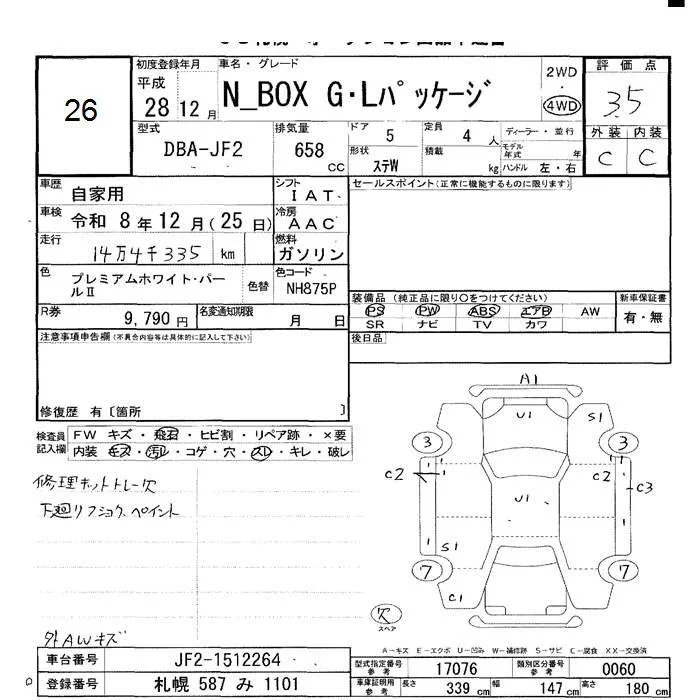 26
初度登録年月
平成
28 12 月
車名・グレード
N_BOX G・Lパッケージ
2WD
・
4WD
評価点
3.5
外装 内装
C C
型式
DBA-JF2
排気量
658
CC
ドア
5
定員
4 人
ディーラー・並行
形状
ステW
積載
kg
モデル年式 年
ハンドル 左・右
車歴
自家用
シフト
IAT
車検
令和 8 年 12 月 (25 日)
冷房
AAC
走行
14万4千335 km
燃料
ガソリン
色
プレミアムホワイト・パールⅡ
色替
色コード
NH875P
R券
9,790 円
名変通知期限
月 日
セールスポイント(正常に機能するものに限ります)
装備品 (純正品に限り○をつけてください)
新車保証書
PS PW ABS エアB AW
有・無
SR ナビ TV カワ
後日品
注意事項申告欄(不具合内容等は具体的に記入して下さい)
修復歴 有〔箇所 〕
検査員
記入欄
FW キズ・飛石・ヒビ割・リペア跡・×要
内装 キズ・汚レ・コゲ・穴・スレ・キレ・破レ
下廻リフショク、ペイント
外AWキズ
A1
U1
S1
3
3
C2
C2
C3
U1
S1
7
7
C1
欠
スペア
A-キズ E-エクボ U-凹み W-補修跡 S-サビ C-腐食 XX-交換済
車台番号
JF2-1512264
登録番号
札幌 587 み 1101
型式指定番号
参考
17076
類別区分番号
参考
0060
車庫証明用
参考
長さ
339 cm
幅
147 cm
高さ
180 cm